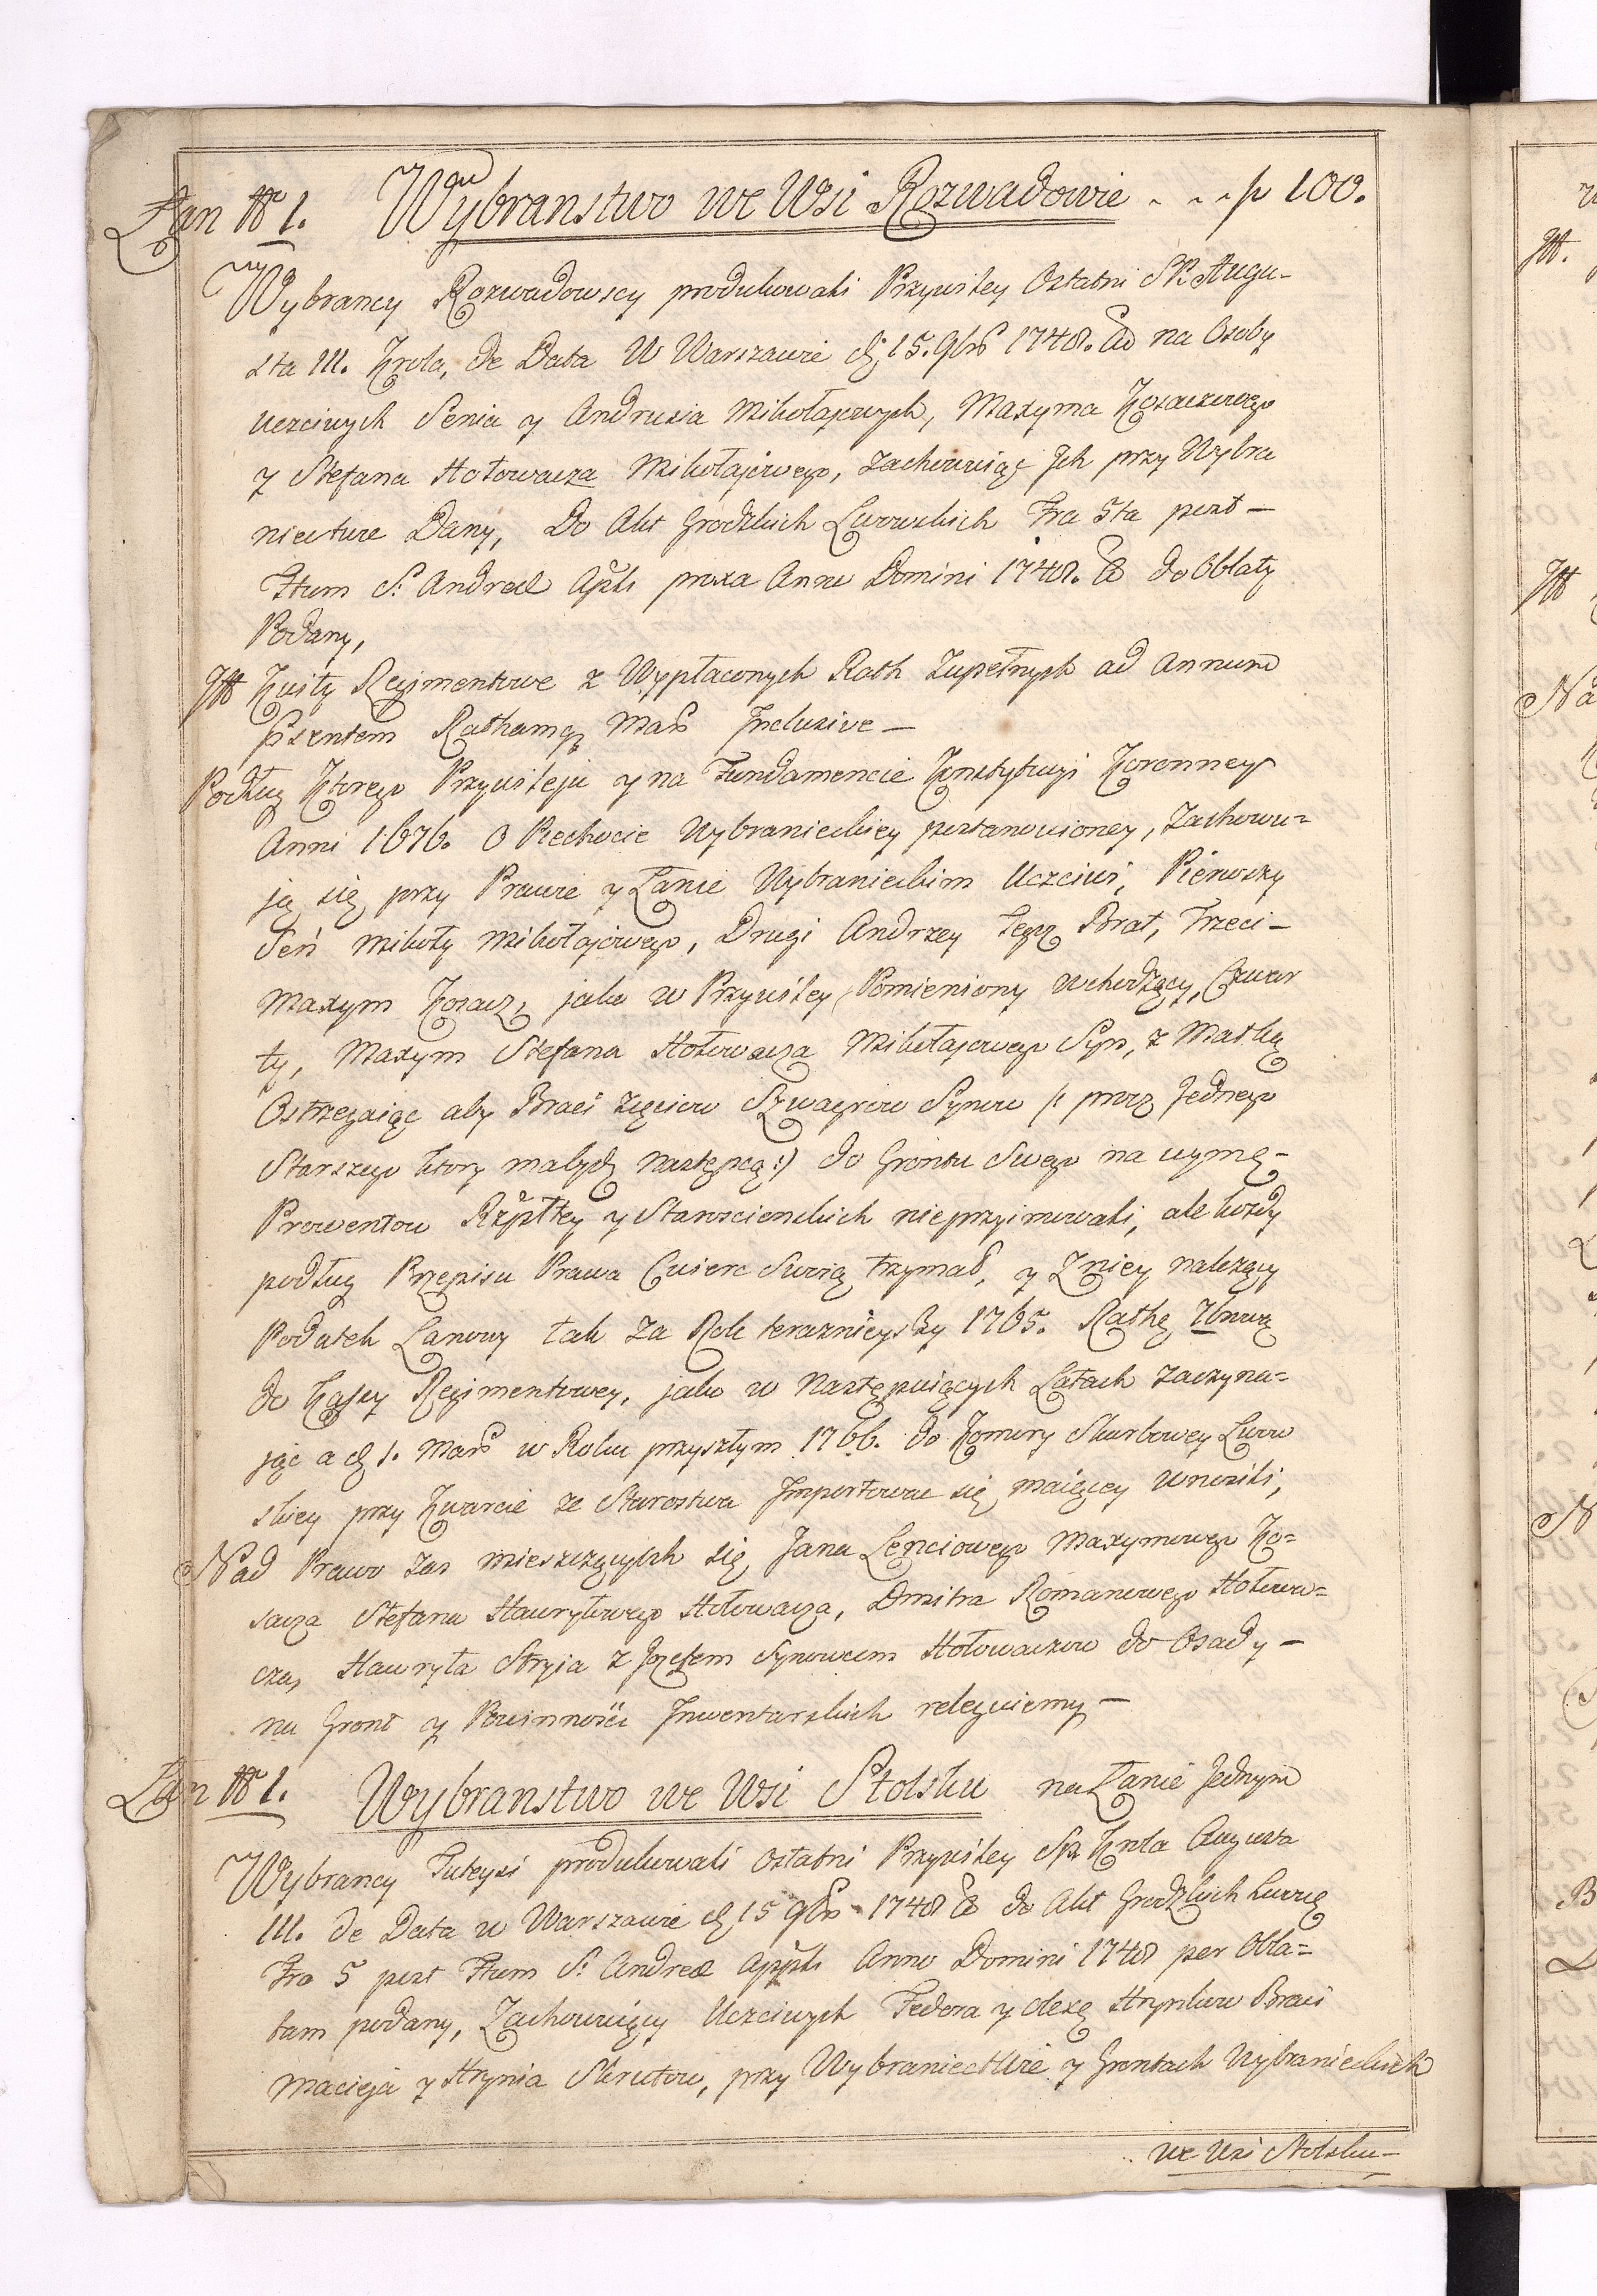 Łan No 1. Wybranstwo we Wsi Rozwadowie - - - p 100.
Wybrancy Rozwadowscy produkowali Przywiley Ostatni SP. Augu-
sta III. Krola, de Data W Warszawie d. 15. 9bris 1748. na Osoby
uczciwych Senia y Andrusia Mikołajowych, Maxyma Kosaczowego
y Stefana Hołowacza Mikołajowego, zachowuiąc Jch przy Wybra
niectwie Dany, Do Akt Grodzkich Lwowskich Fra 5ta post -
Ftum S. Andreae Apli proxa Anno Domini 1748. do Oblaty
Podany,
Jtt Kwity Regimentowe z Wypłaconych Rath Zupełnych ad Annum
psentem Rathamq Maris Jnclusive -
Podług Ktorego Przywileju y na Fundamencie Konstytucyi Koronney
Anni 1676. O Piechocie Wybranieckiey postanowioney, Zachowu=
ją się przy Prawie y Łanie Wybranieckim Uczciwi, Pierwszy
Seń Mikoły Mikołajowego, Drugi Andrzey Tegoż Brat, Trzeci -
Maxym Kosacz, jako w Przywiley Pomieniony wchodzący, Czwar
ty, Maxym Stefana Hołowacza Mikołajowego Syn, z Matką
Ostrzegaiąc aby Braci Zięciow Szwagrow Synow /: procz Jednego
Starszego ktory ma bydz następcą :/ do Gruntu Swego na uymę -
Prowentow Rzpltey y Staroscienskich nieprzyimowali, ale kozdy
podług Przepisu Prawa Cwierc Swoią trzymał, y Zniey należący
Podatek Łanowy tak za Rok teraznieyszy 1765. Rathę 7brową
do Kassy Regimentowey, jako w Następuiących Latach zaczyna=
jąc a d. 1. Maris w Roku przyszłym 1766. do Komory Skarbowey Lwow
skiey przy Kwarcie ze Starostwa Jmportowac się maiącey wnosili,
Nad Prawo zas mieszczących się Jana Lenciowego Maxymowego Ko=
sacza Stefana Hawryłowego Hołowacza, Dmitra Romanowego Hołowa=
cza, Hawryła Stryia z Jozefem Synowcem Hołowaczow do Osady -
na Gront y Powinności Jnwentarskich releguiemy -
Łan No 1. Wybranstwo we Wsi Stolsku na Łanie Jednym
Wybrancy Tuteysi produkowali Ostatni Przywiley SP. Krola Augusta
III. de Data w Warszawie d. 15 9bris 1748 do Akt Grodzkich Lwow
Fra 5 post Ftum S. Andreae Appli Anno Domini 1748 per Obla=
tam podany, Zachowuiący Uczciwych Fedora y Olexę Hrynkow Braci
Macieja y Hrynia Skrutow, przy Wybraniectwie y Grontach Wybranieckich
we Wsi Stolsku -